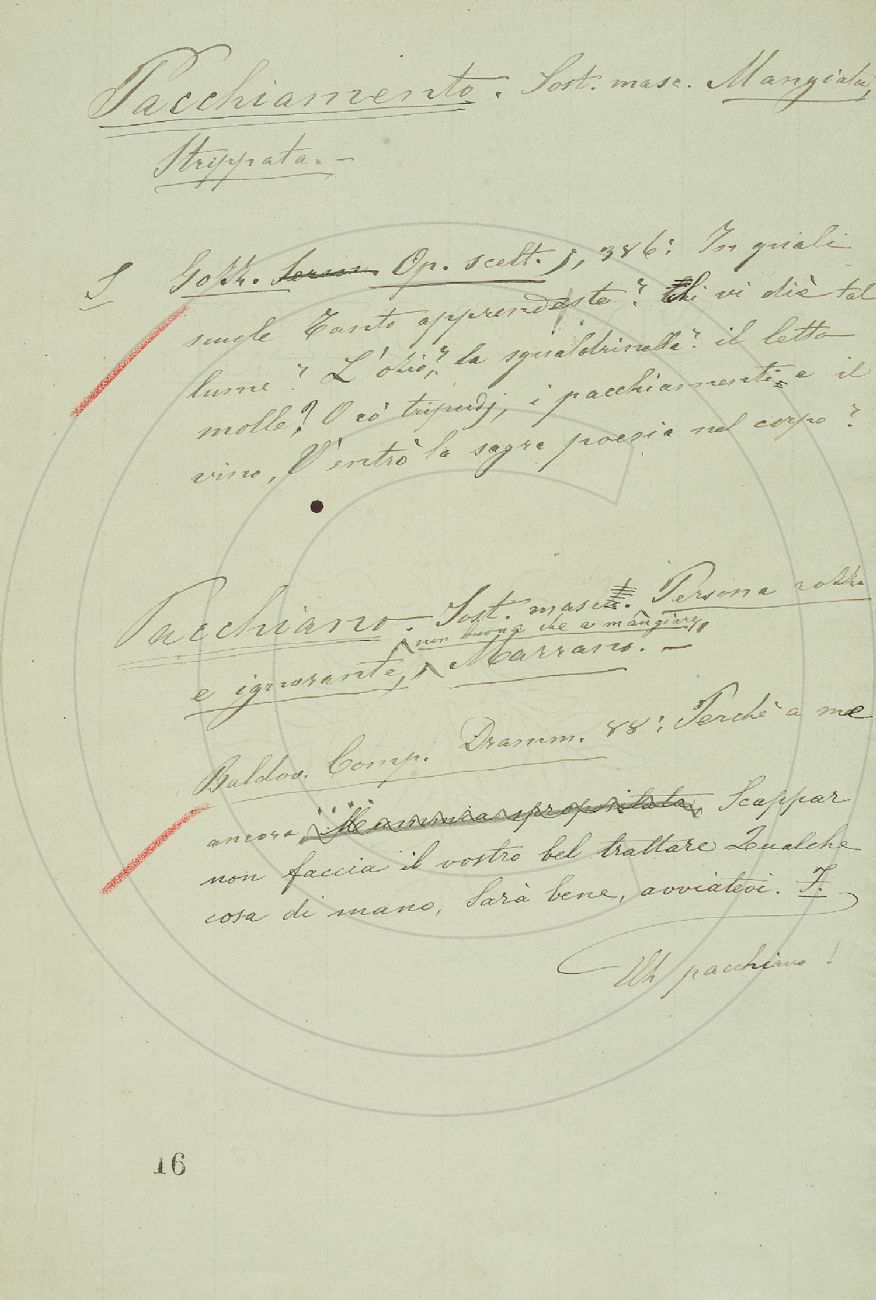 Pacchiamento. Sost. masc. Mangiata,
Strippata. –
S Gozz. Serm. Op. scelt. 5, 386: In quali
scuole Tanto apprendeste? Chi vi diè tal
lume? L'ozio? la sgualdrinella? il letto
molle? O co' tripudj, i pacchiamenti e il
vino, V'entrò la sagra poesia nel corpo?
Pacchiano. Sost. masc. Persona rozza
non buona che a mangiare,
e ignorante, Marrano. –
Baldov. Comp. Dramm. 88: Perchè a me
ancora Mummia spropositata, Scappar
non faccia il vostro bel trattare Qualche
cosa di mano, Sarà bene, avviatevi. F.
Uh pacchiano!
16